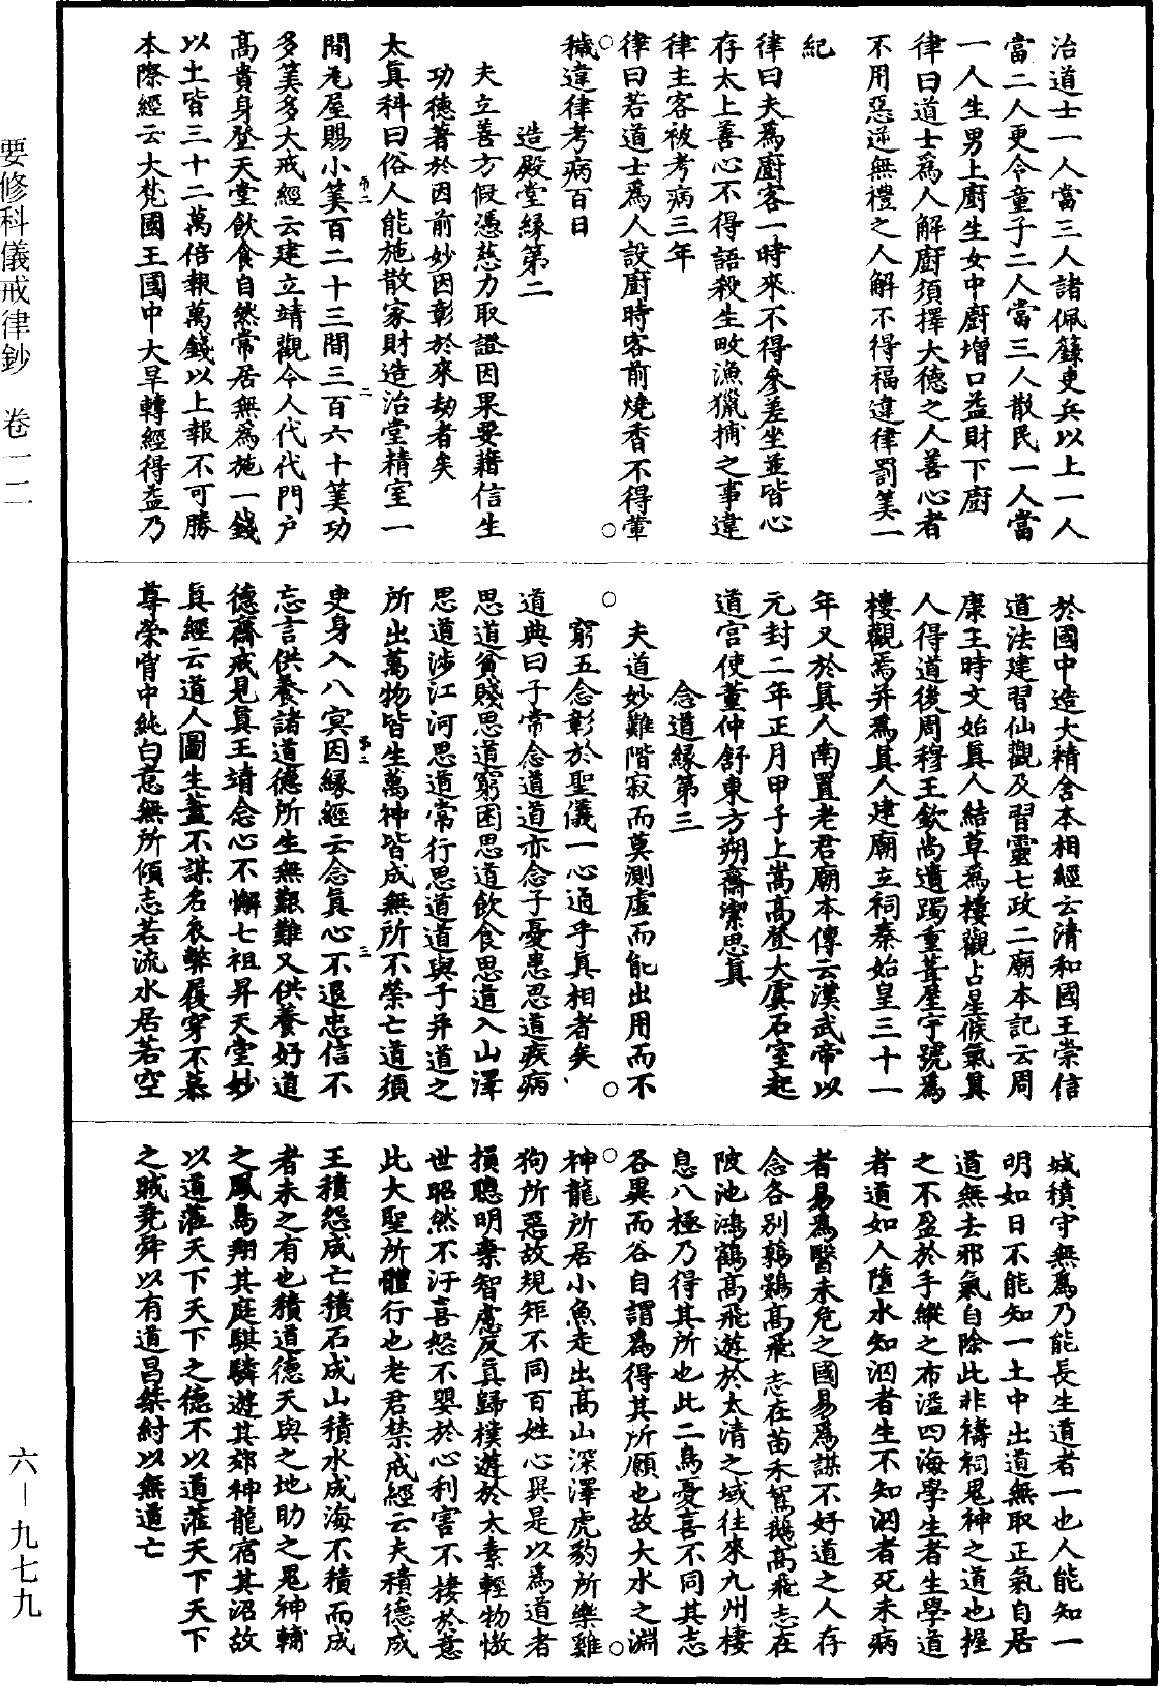 治道士一人當三人諸佩籙吏兵以上一人
當二人更令童子二人當三人散民一人當
一人生男上廚生女中廚增口益財下廚
律曰道士為人解廚須擇大德之人善心者
不用惡逆無禮之人解不得福違律罰筭一
紀
律曰夫為廚客一時來不得參差坐並皆心
存太上善心不得語殺生畋漁獵捕之事違
律主客被考病三年
律曰若道士為人設廚時客前燒香不得葷
穢違律考病百日
造殿堂緣第二
夫立善方假憑慈力取證因果要藉信生
功德著於因前妙因彰於來劫者矣
太真科曰俗人能施散家財造治堂精室一
間瓦屋賜小筭百二十三間三百六十筭功
多筭多大戒經云建立靖觀令人代代門戶
高貴身登天堂飲食自然常居無為施一錢
以土皆三十二萬倍報萬錢以上報不可勝
本際經云大梵國王國中大旱轉經得益乃
於國中造大精舍本相經云清和國王崇信
道法建習仙觀及習靈七政二廟本記云周
康王時文始真人結草為樓觀占星候氣真
人得道後周穆王欽尚遺躅重葺壁宇號為
樓觀焉并為真人建廟立祠秦始皇三十一
年又於真人南置老君廟本傳云漢武帝以
元封二年正月甲子上嵩高登大虞石室起
道宮使董仲舒東方朔齋潔思真
念道緣第三
夫道妙難階寂而莫測虛而能出用而不
窮五念彰於聖儀一心通乎真相者矣
道典曰子常念道道亦念子憂患思道疾病
思道貧賤思道窮困思道飲食思道入山澤
思道涉江河思道常行思道道與子并道之
所出萬物皆生萬神皆成無所不榮亡道須
史身入八冥因緣經云念真心不退忠信不
忘言供養諸道德所生無艱難又供養好道
德齋戒見真王靖念心不懈七祖昇天堂妙
真經云道人圖生蓋不謀名衣弊履穿不慕
尊榮胷中純白意無所傾志若流水居若空
城積守無為乃能長生道者一也人能知一
明如日不能知一土中出道無取正氣自居
道無去邪氣自除此非禱祠鬼神之道也握
之不盈於手縱之布溢四海學生者生學道
者道如人墮水知泅者生不知泅者死未病
者易為醫未危之國易為謀不好道之人存
念各別鶉鷃高飛志在苗禾駕鵝高飛志在
陂池鴻鶴高飛遊於太清之域往來九州棲
息八極乃得其所也此二鳥憂喜不同其志
各異而谷自謂為得其所願也故大水之淵
神龍所居小魚走出高山深澤虎豹所樂雞
狗所惡故規矩不同百姓心異是以為道者
損聰明棄智慮反真歸樸遊於太素輕物傲
世昭然不汙喜怒不嬰於心利害不棲於意
此大聖所體行也老君禁戒經云夫積德成
王積怨成亡積石成山積水成海不積而成
者未之有也積道德天與之地助之鬼神輔
之鳳鳥翔其庭騏驎遊其郊神龍宿其沼故
以道蒞天下天下之德不以道蒞天下天下
之賊堯舜以有道昌桀紂以無道亡
要修科儀戒律鈔　卷一二
六—九七九